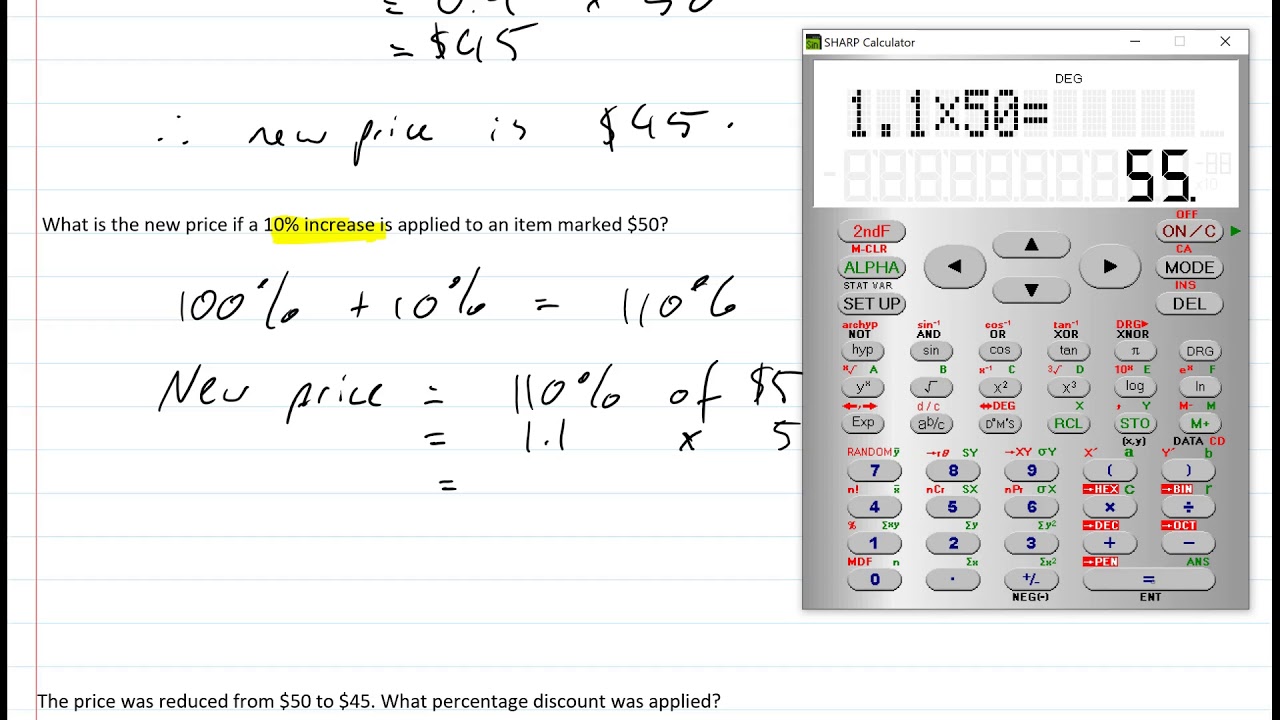 = $45
SHARP Calculator
DEG
1.1×50=
55.
∴ new price is $45.
What is the new price if a 10% increase is applied to an item marked $50?
100% + 10% = 110%
New price = 110% of $5
= 1.1 x 5
=
OFF
2ndF ON/C
M-CLR CA
ALPHA MODE
STAT VAR INS
SET UP DEL
archyp sin⁻¹ cos⁻¹ tan⁻¹ DRG▶
NOT AND OR XOR XNOR
hyp sin cos tan π DRG
ˣ√ A B x⁻¹ C ³√ D 10ˣ E eˣ F
yˣ √ x² x³ log ln
d/c ⇔DEG X , Y M- M
Exp ab/c D°M'S RCL STO M+
(x,y) DATA CD
RANDOM ȳ →rθ SY →XY σY X' a Y' b
7 8 9 ( )
n! x̄ nCr SX nPr σX →HEX C →BIN r
4 5 6 × ÷
% Σxy Σy Σy² →DEC →OCT
1 2 3 + −
MDF n Σx Σx² →PEN ANS
0 · +/− =
NEG(-) ENT
The price was reduced from $50 to $45. What percentage discount was applied?